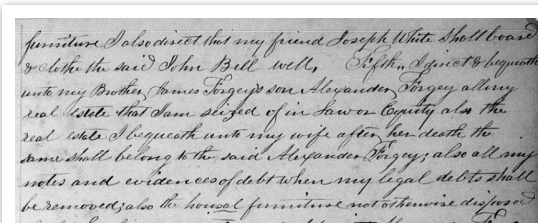 furniture I also direct that my friend Joseph White Shall board
& clothe the said John Bell well, Fifth,, I direct & bequeath
unto my Brother, James Forgey's son Alexander Forgey all my
real estate that I am seized of in Law or Equity also the
real estate I bequeath unto my wife after her death the
same shall belong to the said Alexander Forgey; also all my
notes and evidences of debt when my legal debts shall
be removed; also the housel furniture not otherwise disposed